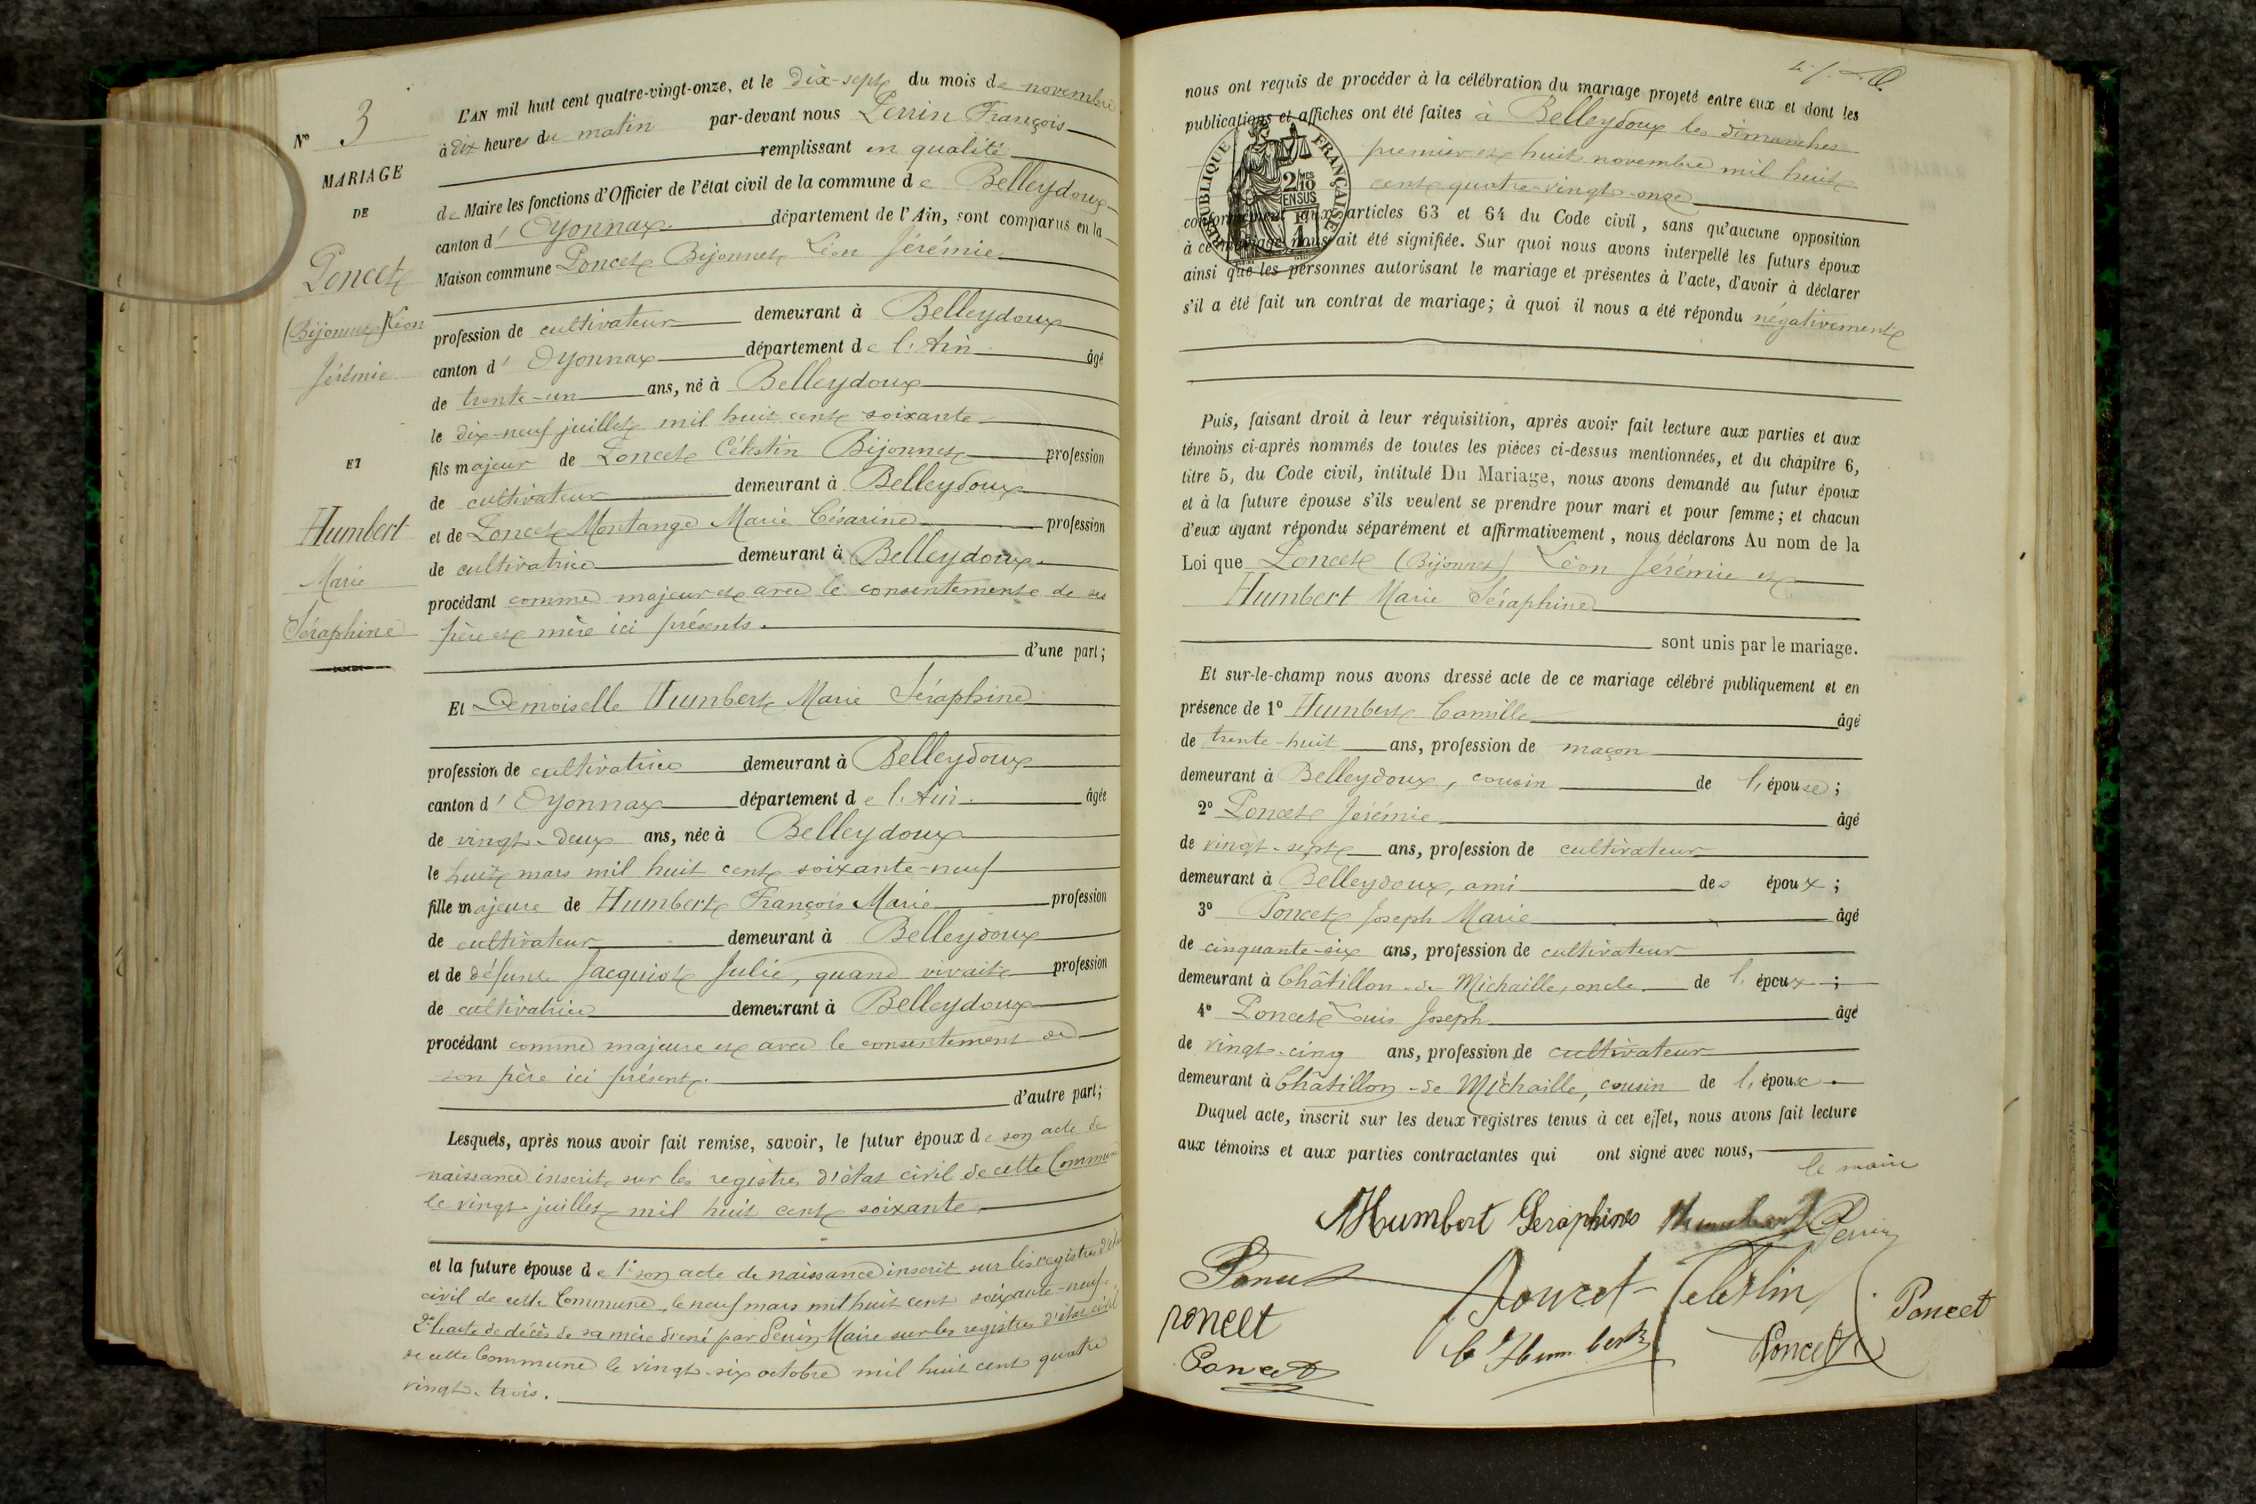 L'AN mil huit cent quatre-vingt-onze, et le dix-sept du mois de novembre
à dix heures du matin par-devant nous Perrin François
remplissant en qualité
de Maire les fonctions d'Officier de l'état civil de la commune de Belleydoux
canton d' Oyonnax département de l'Ain, sont comparus en la
Maison commune Poncet Bijonnet Léon Jérémie
profession de cultivateur demeurant à Belleydoux
canton d' Oyonnax département de l'Ain âgé
de trente-un ans, né à Belleydoux
le dix-neuf juillet mil huit cent soixante
fils majeur de Poncet Célestin Bijonnet profession
de cultivateur demeurant à Belleydoux
et de Poncet Montange Marie Césarine profession
de cultivatrice demeurant à Belleydoux
procédant comme majeur et avec le consentement de ses
père et mère ici présents.
d'une part;
Et Demoiselle Humbert Marie Séraphine
profession de cultivatrice demeurant à Belleydoux
canton d' Oyonnax département de l'Ain âgée
de vingt-deux ans, née à Belleydoux
le huit mars mil huit cent soixante-neuf
fille majeure de Humbert François Marie profession
de cultivateur demeurant à Belleydoux
et de défunte Jacquiot Julie, quand vivait profession
de cultivatrice demeurant à Belleydoux
procédant comme majeure et avec le consentement de
son père ici présent.
d'autre part;
Lesquels, après nous avoir fait remise, savoir, le futur époux de son acte de
naissance inscrit sur les registres d'état civil de cette Commune
le vingt juillet mil huit cent soixante.
et la future épouse de 1° son acte de naissance inscrit sur les registres d'état
civil de cette Commune le neuf mars mil huit cent soixante-neuf.
2° l'acte de décès de sa mère dressé par Perrin Maire sur les registres d'état civil
de cette Commune le vingt-six octobre mil huit cent quatre
vingt-trois.
N° 3
MARIAGE
DE
Poncet
(Bijonnet) Léon
Jérémie
ET
Humbert
Marie
Séraphine
nous ont requis de procéder à la célébration du mariage projeté entre eux et dont les
publications et affiches ont été faites à Belleydoux les dimanches
premier et huit novembre mil huit
cent quatre-vingt-onze
conformément aux articles 63 et 64 du Code civil, sans qu'aucune opposition
à ce mariage nous ait été signifiée. Sur quoi nous avons interpellé les futurs époux
ainsi que les personnes autorisant le mariage et présentes à l'acte, d'avoir à déclarer
s'il a été fait un contrat de mariage; à quoi il nous a été répondu négativement
RÉPUBLIQUE FRANÇAISE
2/10 MES
EN SUS
1 F
Puis, faisant droit à leur réquisition, après avoir fait lecture aux parties et aux
témoins ci-après nommés de toutes les pièces ci-dessus mentionnées, et du chapitre 6,
titre 5, du Code civil, intitulé Du Mariage, nous avons demandé au futur époux
et à la future épouse s'ils veulent se prendre pour mari et pour femme; et chacun
d'eux ayant répondu séparément et affirmativement, nous déclarons Au nom de la
Loi que Poncet (Bijonnet) Léon Jérémie et
Humbert Marie Séraphine
sont unis par le mariage.
Et sur-le-champ nous avons dressé acte de ce mariage célébré publiquement et en
présence de 1° Humbert Camille âgé
de trente-huit ans, profession de maçon
demeurant à Belleydoux, cousin de l'épouse;
2° Poncet Jérémie âgé
de vingt-sept ans, profession de cultivateur
demeurant à Belleydoux, ami des époux;
3° Poncet Joseph Marie âgé
de cinquante-six ans, profession de cultivateur
demeurant à Châtillon-de Michaille, oncle de l'époux;
4° Poncet Louis Joseph âgé
de vingt-cinq ans, profession de cultivateur
demeurant à Châtillon-de Michaille, cousin de l'époux
Duquel acte, inscrit sur les deux registres tenus à cet effet, nous avons fait lecture
aux témoins et aux parties contractantes qui ont signé avec nous,
le maire
MHumbert Seraphine Perrin
Poncet Poncet Celestin
Poncet
poncet
C Humbert Poncet
Poncet